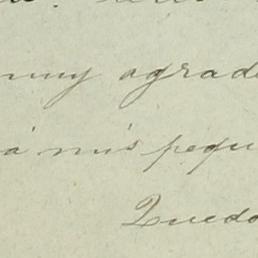 muy agrade
á mis pequ
Quedo